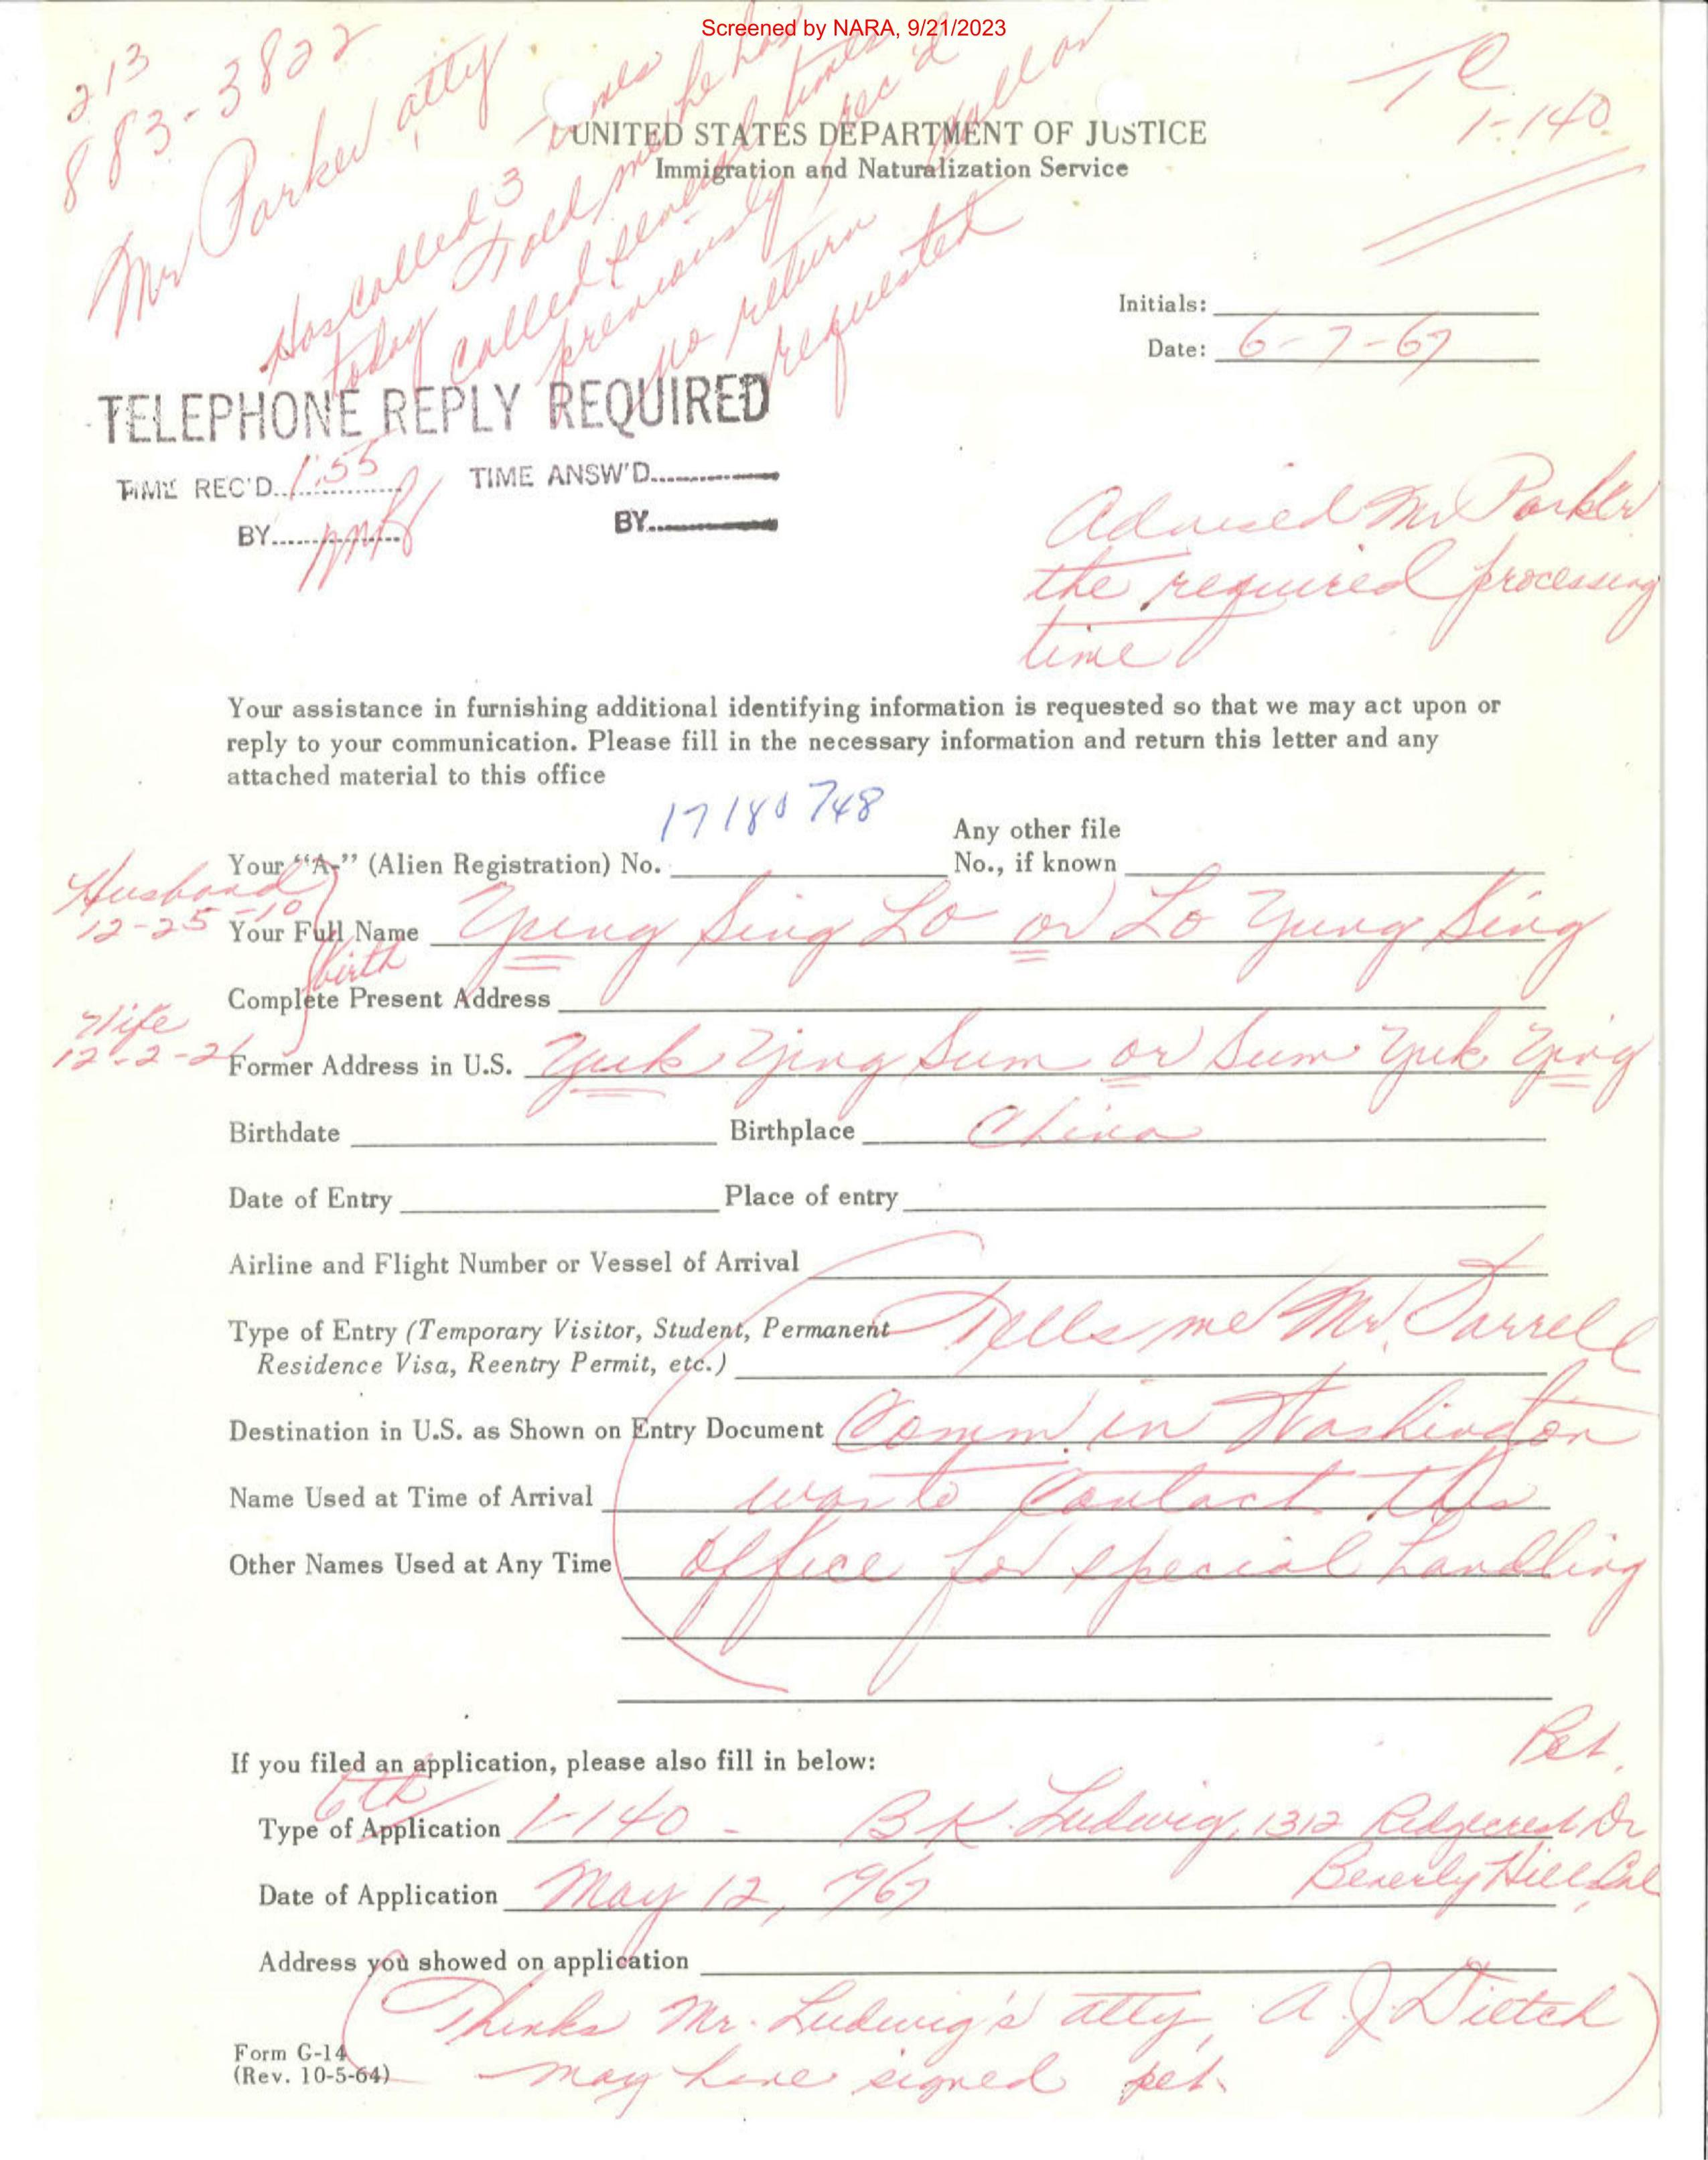 Screened by NARA, 9/21/2023
213
883-3822
Mr Parker atty
Has called 3 times
today Told me he has
called several times
previously rec'd
no return call or
requested
TC
1-140
UNITED STATES DEPARTMENT OF JUSTICE
Immigration and Naturalization Service
Initials:
Date: 6-7-67
TELEPHONE REPLY REQUIRED
TIME REC'D. 1:55 TIME ANSW'D.
BY BY
Advised Mr Parker
the required processing
time
Your assistance in furnishing additional identifying information is requested so that we may act upon or
reply to your communication. Please fill in the necessary information and return this letter and any
attached material to this office
17180748
Any other file
Your “A-” (Alien Registration) No. No., if known
Husband
12-25-10
Your Full Name Yeng Sing Lo or Lo Yung Sing
birth
Complete Present Address
Wife
12-2-21
Former Address in U.S. Yuk Ying Sum or Sum Yuk Ying
Birthdate Birthplace China
Date of Entry Place of entry
Airline and Flight Number or Vessel of Arrival
Type of Entry (Temporary Visitor, Student, Permanent Tells me Mr. Farrell
Residence Visa, Reentry Permit, etc.)
Destination in U.S. as Shown on Entry Document Comm. in Washington
Name Used at Time of Arrival was to contact this
Other Names Used at Any Time office for special handling
Pet.
If you filed an application, please also fill in below:
6th
Type of Application 1-140 - B K. Ludwig, 1312 Ridgecrest Dr
Beverly Hills Cal
Date of Application May 12, 1967
Address you showed on application
(Thinks Mr. Ludwig's atty, A J. Dietch
may have signed pet.)
Form G-14
(Rev. 10-5-64)